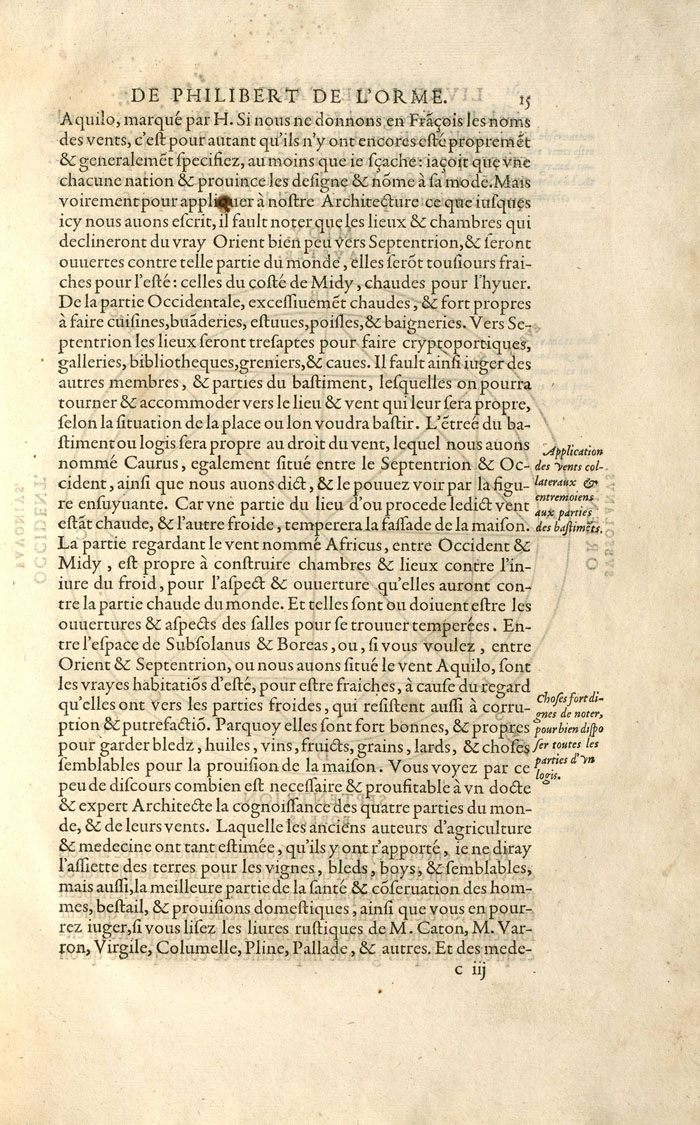 DE PHILIBERT DE L'ORME. 15
Aquilo, marqué par H. Si nous ne donnons en Frãçois les noms
des vents, c'eſt pour autant qu'ils n'y ont encores eſté propremẽt
& generalemẽt ſpecifiez, au moins que ie ſçache: iaçoit que vne
chacune nation & prouince les deſigne & nõme à ſa mode. Mais
voirement pour appliquer à noſtre Architecture ce que iuſques
icy nous auons eſcrit, il fault noter que les lieux & chambres qui
declineront du vray Orient bien peu vers Septentrion, & ſeront
ouuertes contre telle partie du monde, elles ſerõt touſiours frai-
ches pour l'eſté: celles du coſté de Midy, chaudes pour l'hyuer.
De la partie Occidentale, exceſſiuemẽt chaudes, & fort propres
à faire cuiſines, buãderies, eſtuues, poiſles, & baigneries. Vers Se-
ptentrion les lieux ſeront treſaptes pour faire cryptoportiques,
galleries, bibliotheques, greniers, & caues. Il fault ainſi iuger des
autres membres, & parties du baſtiment, leſquelles on pourra
tourner & accommoder vers le lieu & vent qui leur ſera propre,
ſelon la ſituation de la place ou lon voudra baſtir. L'ẽtreé du ba-
ſtiment ou logis ſera propre au droit du vent, lequel nous auons
nommé Caurus, egalement ſitué entre le Septentrion & Oc-
cident, ainſi que nous auons dict, & le pouuez voir par la figu-
re enſuyuante. Car vne partie du lieu d'ou procede ledict vent
eſtãt chaude, & l'autre froide, temperera la faſſade de la maiſon.
Application
des vents col-
lateraux &
entremoiens
aux parties
des baſtimẽts.
La partie regardant le vent nommé Africus, entre Occident &
Midy, eſt propre à conſtruire chambres & lieux contre l'in-
iure du froid, pour l'aſpect & ouuerture qu'elles auront con-
tre la partie chaude du monde. Et telles ſont ou doiuent eſtre les
ouuertures & aſpects des ſalles pour ſe trouuer temperées. En-
tre l'eſpace de Subſolanus & Boreas, ou, ſi vous voulez, entre
Orient & Septentrion, ou nous auons ſitué le vent Aquilo, ſont
les vrayes habitatiõs d'eſté, pour eſtre fraiches, à cauſe du regard
qu'elles ont vers les parties froides, qui reſiſtent auſſi à corru-
ption & putrefactiõ. Parquoy elles ſont fort bonnes, & propres
pour garder bledz, huiles, vins, fruicts, grains, lards, & choſes
ſemblables pour la prouiſion de la maiſon. Vous voyez par ce
Choſes fort di-
gnes de noter,
pour bien diſpo
ſer toutes les
parties d'vn
logis.
peu de diſcours combien eſt neceſſaire & proufitable à vn docte
& expert Architecte la cognoiſſance des quatre parties du mon-
de, & de leurs vents. Laquelle les anciens auteurs d'agriculture
& medecine ont tant eſtimée, qu'ils y ont r'apporté, ie ne diray
l'aſſiette des terres pour les vignes, bleds, boys, & ſemblables,
mais auſſi, la meilleure partie de la santé & cõſeruation des hom-
mes, beſtail, & prouiſions domeſtiques, ainſi que vous en pour-
rez iuger, ſi vous liſez les liures ruſtiques de M. Caton, M. Var-
ron, Virgile, Columelle, Pline, Pallade, & autres. Et des mede-
c iij